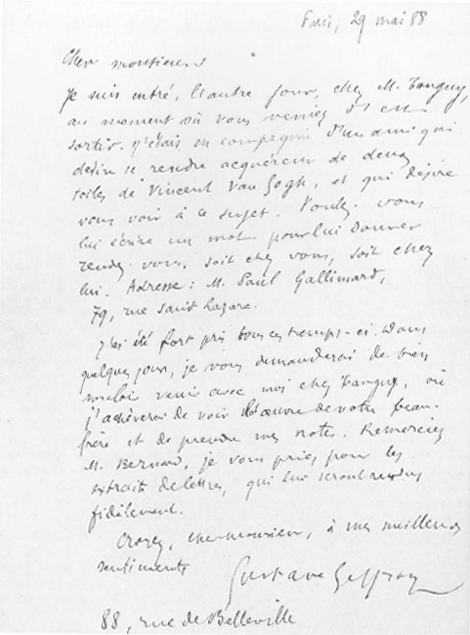 Paris, 29 mai 88
Cher monsieur
Je suis entré, l'autre jour, chez M. Tanguy,
au moment où vous veniez d'en
sortir. J'étais en compagnie d'un ami qui
désire se rendre acquéreur de deux
toiles de Vincent Van Gogh, et qui désire
vous voir à ce sujet. Voulez-vous
lui écrire un mot pour lui donner
rendez-vous, soit chez vous, soit chez
lui. Adresse : M. Paul Gallimard,
79, rue Saint Lazare.
J'ai été fort pris tous ces temps-ci. Dans
quelques jours, je vous demanderai de bien
vouloir venir avec moi chez Tanguy, où
j'achèverai de voir l'œuvre de votre beau-
frère et de prendre mes notes. Remerciez
M. Bernard, je vous prie, pour les
extraits de lettres, qui lui seront rendus
fidèlement.
Croyez, cher monsieur, à mes meilleurs
sentiments
Gustave Geffroy
88, rue de Belleville